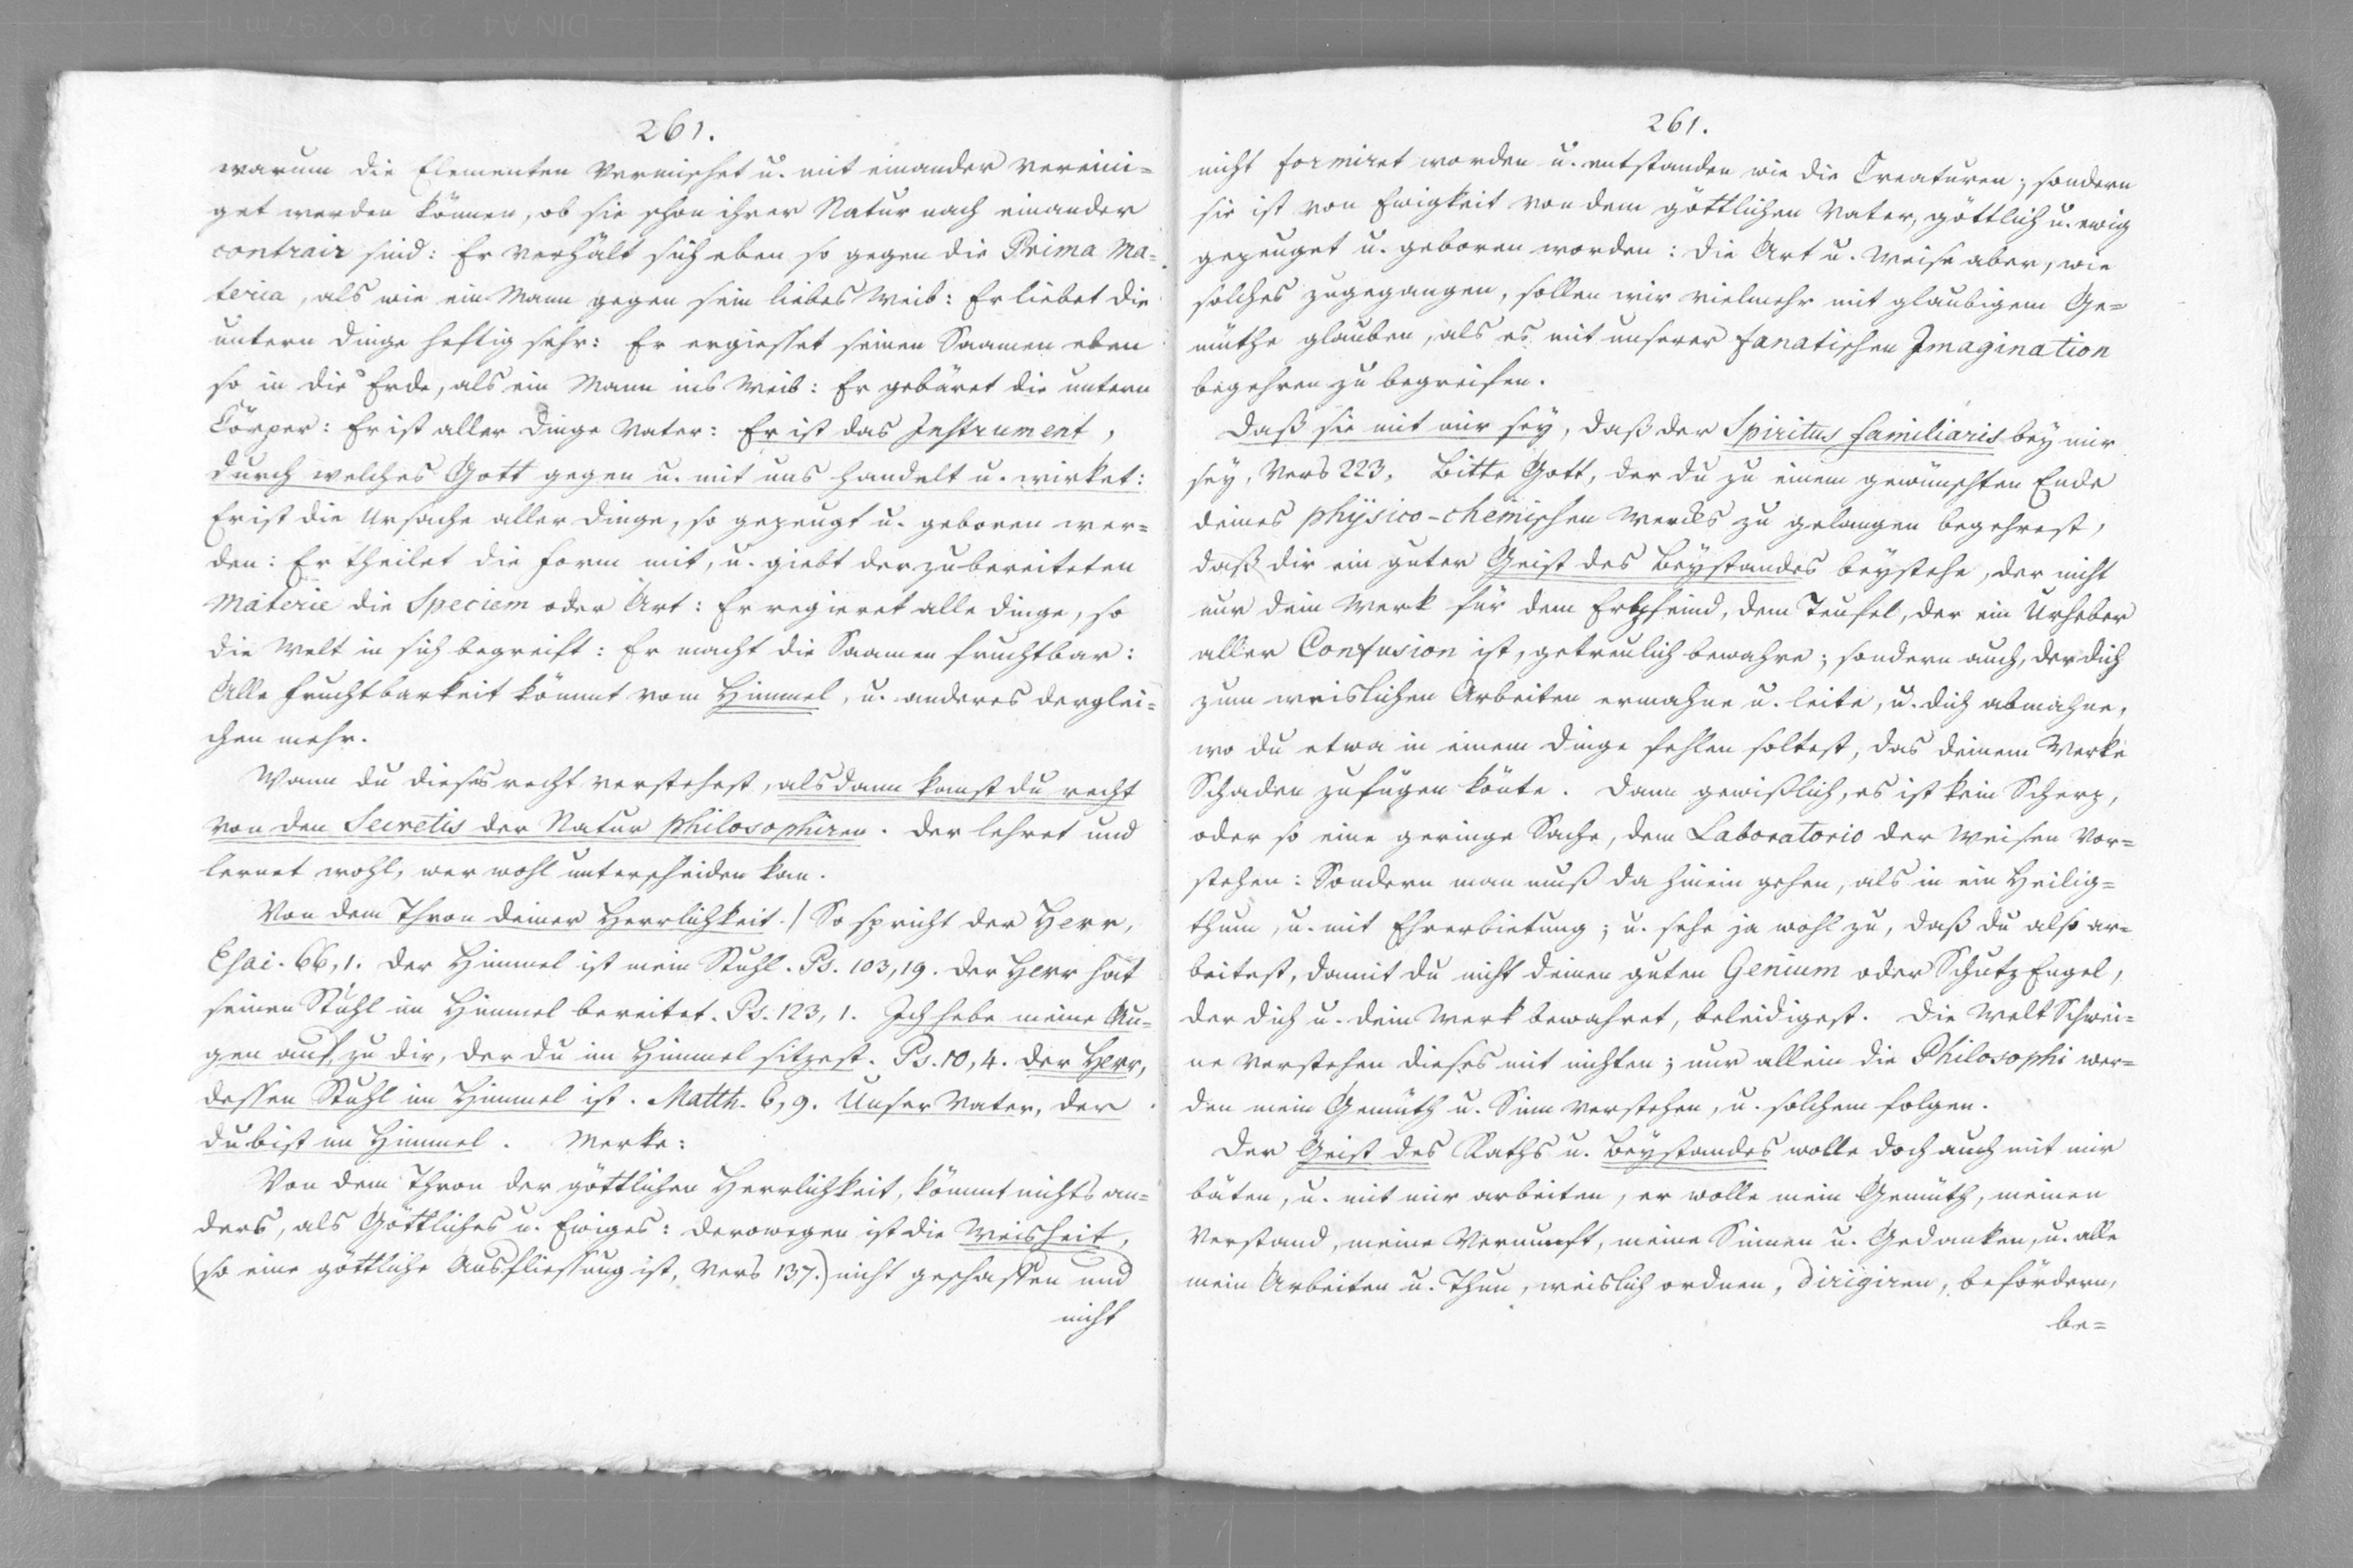 261.
warum die Elementen vermischet u. mit einander vereini=
get werden können, ob sie schon ihrer Natur nach einander
contrair sind: Er verhält sich eben so gegen die Prima Ma=
teria, als wie ein Mann gegen sein liebes Weib: Er liebet die
untern Dinge heftig sehr: Er ergiesset seinen Saamen eben
so in die Erde, als ein Mann ins Weib: Er gebäret die untern
Cörper: Er ist aller Dinge Vater: Er ist das Instrument,
durch welches Gott gegen u. mit uns handelt u. wirket:
Er ist die Ursache aller Dinge, so gezeugt u. geboren wer=
den: Er theilet die Form mit, u. giebt der zubereiteten
Materie die Speciem oder Art: Er regieret alle Dinge, so
die Welt in sich begreift: Er macht die Saamen fruchtbar:
Alle Fruchtbarkeit kömmt vom Himmel, u. anderes derglei=
chen mehr.
Wann du dieses recht verstehest, alsdann kanst du recht
von den Secretis der Natur philosophiren. Der lehret und
lernet wohl, wer wohl unterscheiden kan.
Von dem Thron deiner Herrlichkeit./ So spricht der Herr,
Esai. 66,1. Der Himmel ist mein Stuhl. Ps. 103,19. Der Herr hat
seinen Stuhl im Himmel bereitet. Ps. 123, 1. Ich hebe meine Au=
gen auf, zu dir, der du im Himmel sitzest. Ps. 10, 4. Der Herr,
dessen Stuhl im Himmel ist. Matth. 6, 9. Unser Vater, der
du bist im Himmel. Merke:
Von dem Thron der göttlichen Herrlichkeit, kömmt nichts an=
ders, als Göttliches u. Ewiges: derowegen ist die Weisheit,
(so eine göttliche Ausfliessung ist, Vers 137.) nicht geschaffen und
nicht
261.
nicht formiret worden u. entstanden wie die Creaturen; sondern
sie ist von Ewigkeit von dem göttlichen Vater, göttlich u. ewig
gezeuget u. geboren worden: Die Art u. Weise aber, wie
solches zugegangen, sollen wir vielmehr mit glaubigem Ge=
müthe glauben, als es mit unserer fanatischen Imagination
begehren zu begreifen.
Daß sie mit mir sey, daß der Spiritus familiaris bey mir
sey, Vers 223. Bitte Gott, der du zu einem gewünschten Ende
deines physico-chemischen Wercks zu gelangen begehrest,
daß dir ein guter Geist des Beystandes beystehe, der nicht
nur dein Werk für dem Erbfeind, dem Teufel, der ein Urheber
aller Confusion ist, getreulich bewahre; sondern auch, der dich
zum weislichen Arbeiten ermahne u. leite, u. dich abmahne,
wo du etwa in einem Dinge fehlen soltest, das deinem Werke
Schaden zufügen könte. Dann gewißlich, es ist kein Scherz,
oder so eine geringe Sache, dem Laboratorio der Weisen vor=
stehen: Sondern man muß da hinein gehen, als in ein Heilig=
thum, u. mit Ehrerbietung; u. sehe ja wohl zu, daß du also ar=
beitest, damit du nicht deinen guten Genium oder SchutzEngel,
der dich u. dein Werk bewahret, beleidigest. Die Welt Schwei=
ne verstehen dieses mit nichten; nur allein die Philosophi wer=
den mein Gemüth u. Sinn verstehen, u. solchem folgen.
Der Geist des Raths u. Beystandes wolle doch auch mit mir
bäten, u. mit mir arbeiten, er wolle mein Gemüth, meinen
Verstand, meine Vernunft, meine Sinnen u. Gedanken, u. alle
mein Arbeiten u. Thun, weislich ordnen, dirigiren, befördern,
be=